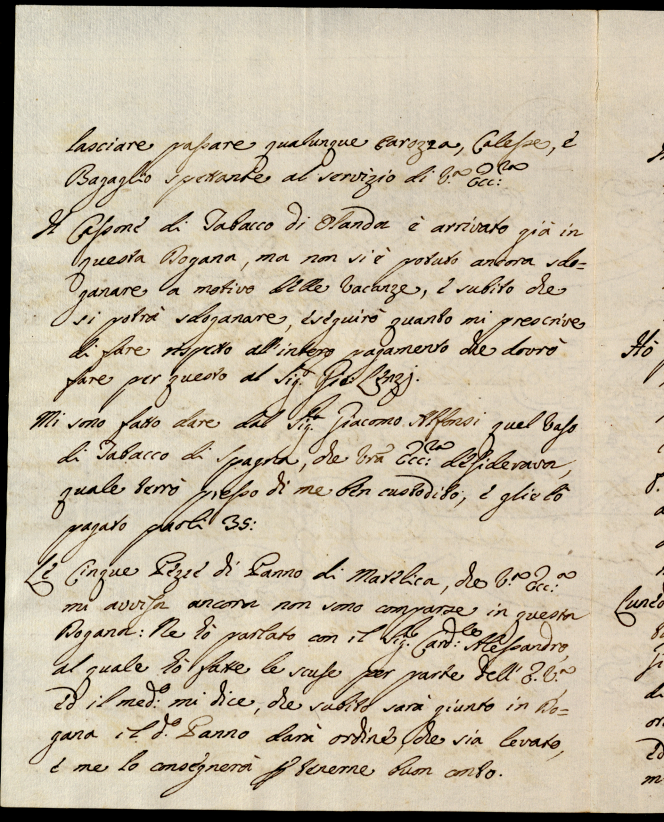 lasciare passare qualunque Carozza, Calesse, è
Bagaglio spettante al servizio di V.ra Ecc:za
Il Cassone di Tabacco di Olanda è arrivato già in
questa Dogana, ma non si è potuto ancora sdo=
ganare a motivo delle Vacanze, è subito che
si potrà sdoganare, eseguirò quanto mi prescrive
di fare rispetto all'intero pagamento che dovrò
fare per questo al Sig.r Gio: Lenzj.
Mi sono fatto dare dal Sig.r Giacomo Alfonsi quel Vaso
di Tabacco di Spagna, che V.ra Ecc:za desiderava,
quale terrò presso di me ben custodito, è gliel'ò
pagato paoli 35:
Le Cinque Pezze di Panno di Matelica, che V.ra Ecc:za
mi avvisa ancora non sono comparse in questa
Dogana: Ne hò parlato con il Sig.r Card.le Alessandro,
al quale hò fatte le scuse per parte dell'E. V.ra
Ed il med.o mi dice, che subito sarà giunto in Do=
gana il d.o Panno darà ordine, che sia levato,
è me lo consegnerà p tenerne buon conto.
Hò